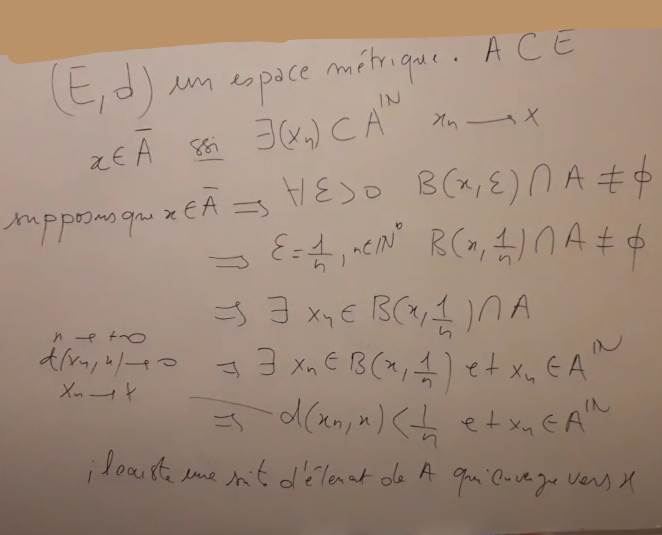 (E,d) un espace métrique. A ⊂ E
x ∈ Ā ssi ∃(xn) ⊂ A^IN xn → x
supposons que x ∈ Ā ⇒ ∀ε>0 B(x,ε) ∩ A ≠ ϕ
⇒ ε = 1/n, n ∈ IN* B(x, 1/n) ∩ A ≠ ϕ
⇒ ∃ xn ∈ B(x, 1/n) ∩ A
n → +∞
d(xn, x) → 0 ⇒ ∃ xn ∈ B(x, 1/n) et xn ∈ A^IN
xn → x
⇒ d(xn, x) < 1/n et xn ∈ A^IN
il existe une suite d'élément de A qui converge vers x